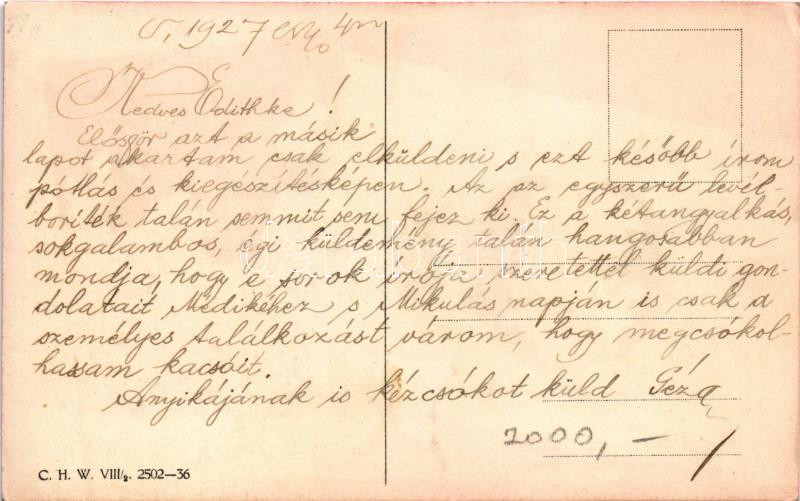 1927
Kedves Edithke!
Először azt a másik
lapot akartam csak elküldeni s ezt később írom
pótlás és kiegészítésképen. Az az egyszerű levél-
boríték talán semmit sem fejez ki. Ez a kétangyalkás,
sokgalambos, égi küldemény talán hangosabban
mondja, hogy e sorok írója szeretettel küldi gon-
dolatait Medikéhez s Mikulás napján is csak a
személyes találkozást várom, hogy megcsókol-
hassam kacsóit.
Anyikájának is kézcsókot küld Géza
2000,-
C. H. W. VIII/2. 2502—36